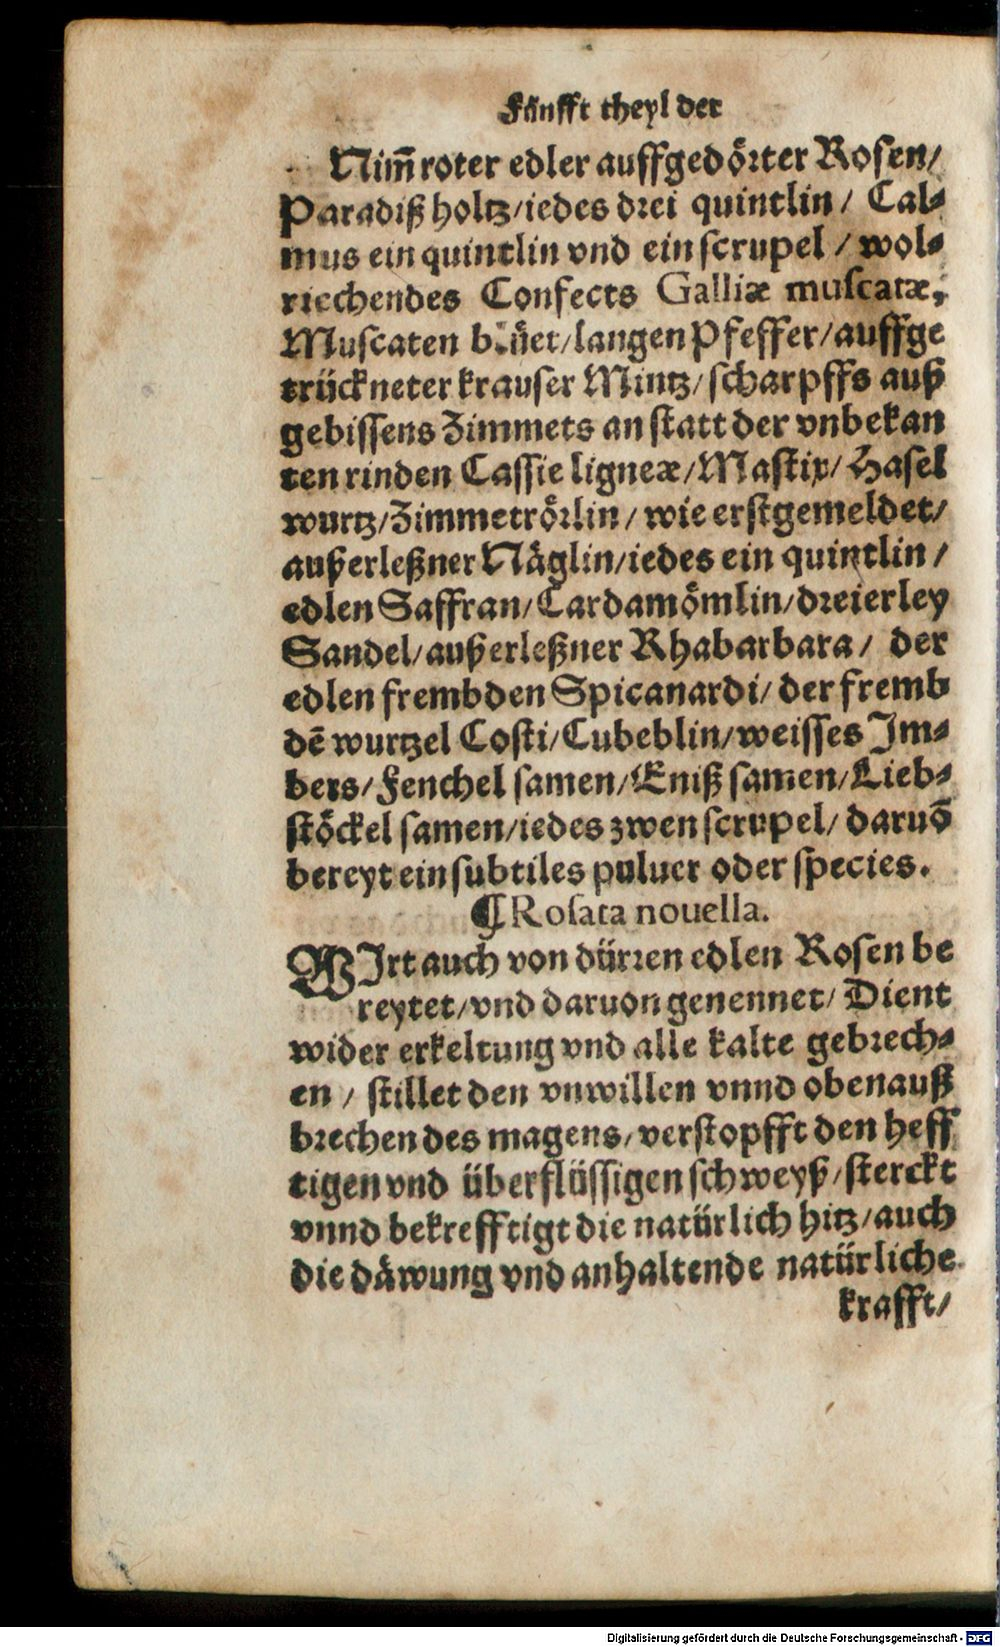 Fünfft theyl der
Nim̄ roter edler auffgedörter Rosen/
Paradiß holtz/iedes drei quintlin/ Cal⸗
mus ein quintlin vnd ein scrupel / wol⸗
riechendes Confects Galliæ muscatæ,
Muscaten blüet/langen Pfeffer/auffge
trückneter krauser Mintz/scharpffs auß
gebissens Zimmets an statt der vnbekan
ten rinden Cassie ligneæ/Mastix/Hasel
wurtz/Zimmetrörlin/wie erstgemeldet/
außerleßner Näglin/iedes ein quintlin/
edlen Saffran/Cardamömlin/dreierley
Sandel/außerleßner Rhabarbara/ der
edlen frembden Spicanardi/der fremb
dē wurtzel Costi/Cubeblin/weisses Im⸗
bers/Fenchel samen/Eniß samen/Lieb⸗
stöckel samen/iedes zwen scrupel/ daruō
bereyt ein subtiles puluer oder species.
¶Rosata nouella.
WIrt auch von dürren edlen Rosen be
reytet/vnd daruon genennet/ Dient
wider erkeltung vnd alle kalte gebrech⸗
en / stillet den vnwillen vnnd obenauß
brechen des magens/verstopfft den heff
tigen vnd überflüssigen schweyß/sterckt
vnnd bekrefftigt die natürlich hitz/auch
die däwung vnd anhaltende natürliche
krafft/
Digitalisierung gefördert durch die Deutsche Forschungsgemeinschaft - DFG